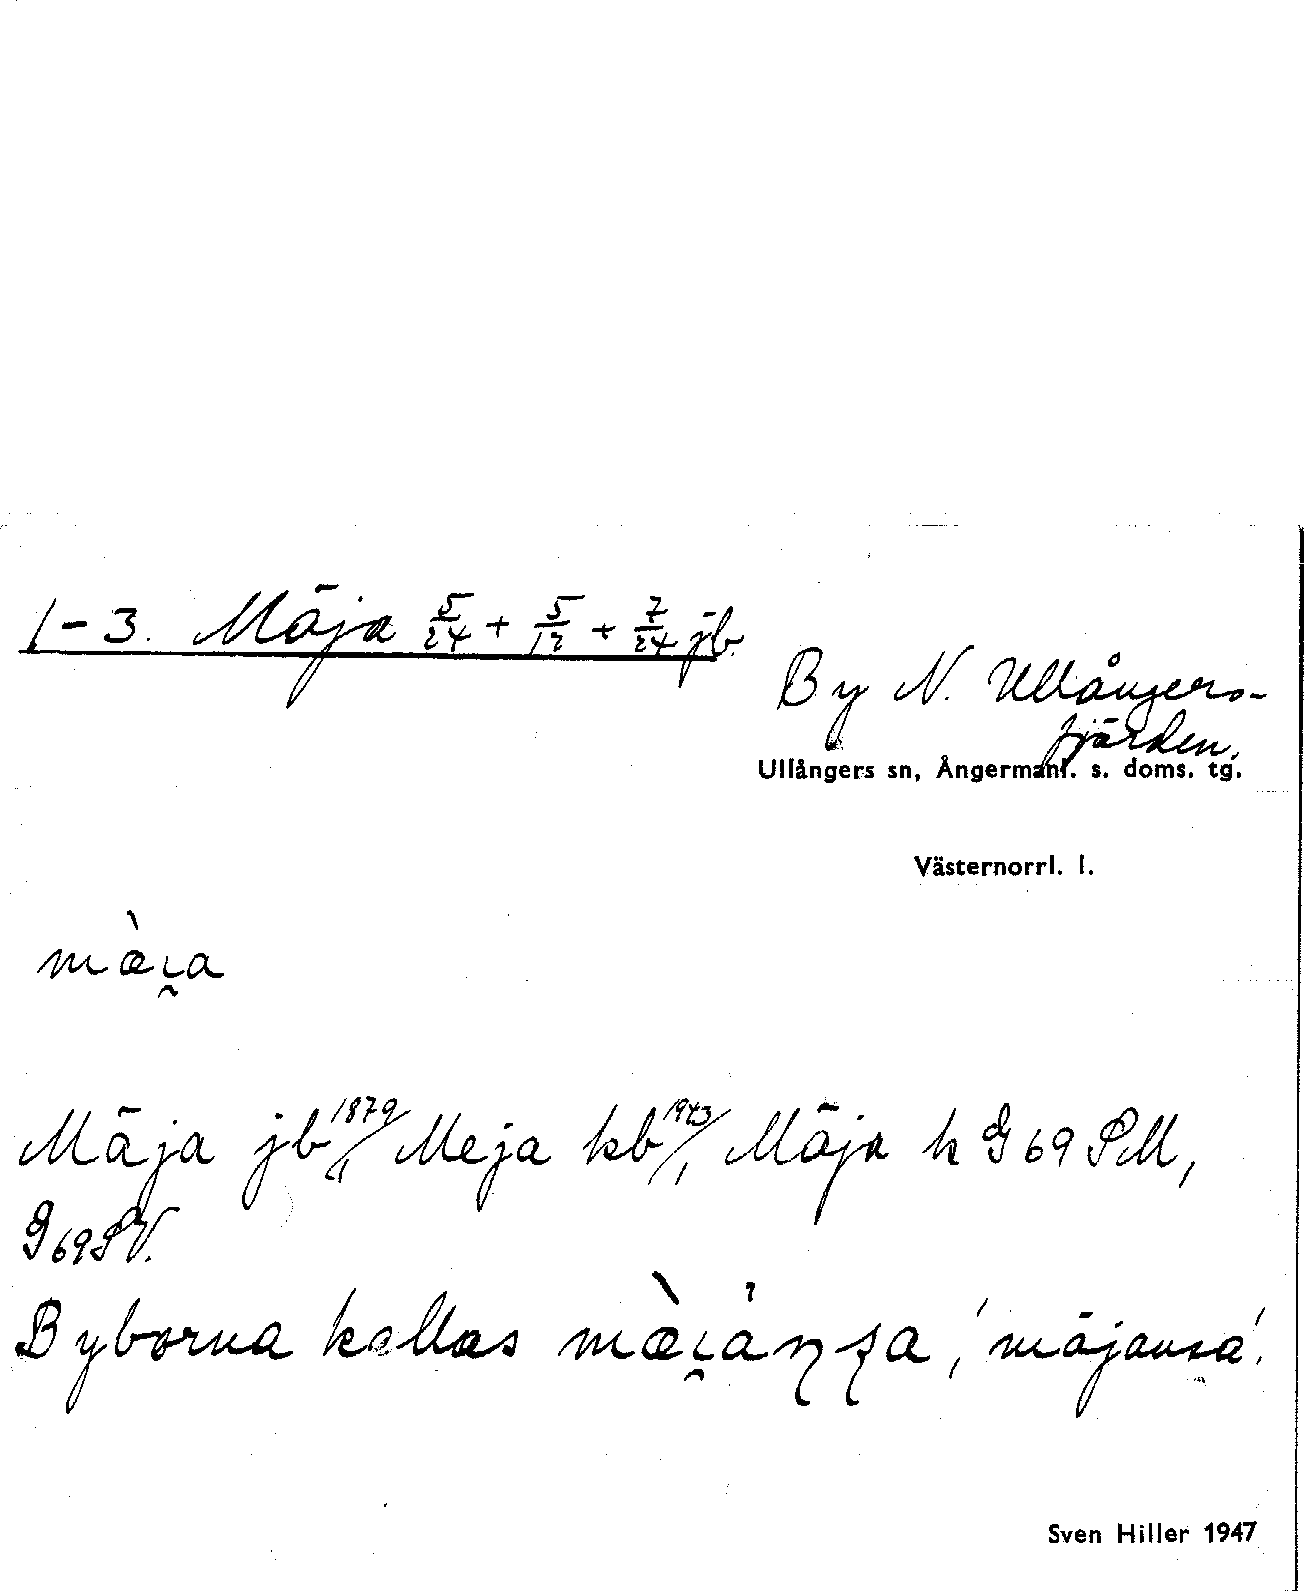 1-3. Mäja 5/24 + 5/12 + 7/24 jb.
By N. Ullångers-
fjärden.
Ullångers sn, Ångermanl. s. doms. tg.
Västernorrl. l.
mæ̀i̯a
Mäja jb 1879/11 Meja kb 1943/1, Mäja h G 69 SM,
G 69 SV.
Byborna kallas mæ̀i̯áɳʂa, 'mäjansa'.
Sven Hiller 1947